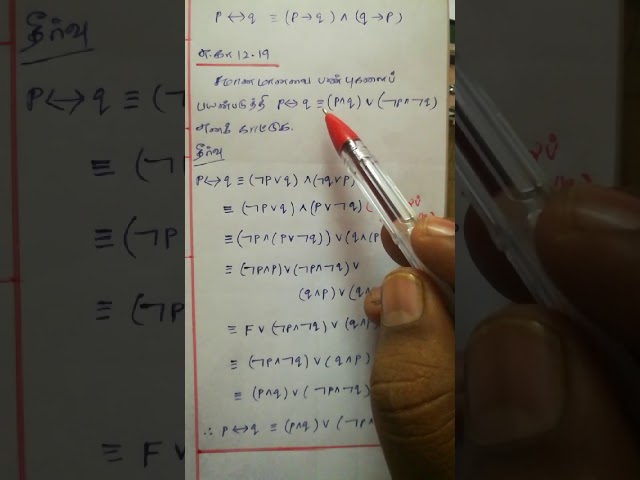 P ↔ q ≡ (P → q) ∧ (q → P)
எ.கா 12.19
சமானமானவை பண்புகளைப்
பயன்படுத்தி P ↔ q ≡ (P ∧ q) ∨ (¬P ∧ ¬q)
எனக் காட்டுக.
தீர்வு
P ↔ q ≡ (¬P ∨ q) ∧ (¬q ∨ P)
≡ (¬P ∨ q) ∧ (P ∨ ¬q)
≡ (¬P ∧ (P ∨ ¬q)) ∨ (q ∧ (P
≡ (¬P ∧ P) ∨ (¬P ∧ ¬q) ∨
(q ∧ P) ∨ (q ∧
≡ F ∨ (¬P ∧ ¬q) ∨ (q ∧
≡ (¬P ∧ ¬q) ∨ (q ∧ P)
≡ (P ∧ q) ∨ (¬P ∧ ¬q)
∴ P ↔ q ≡ (P ∧ q) ∨ (¬P ∧